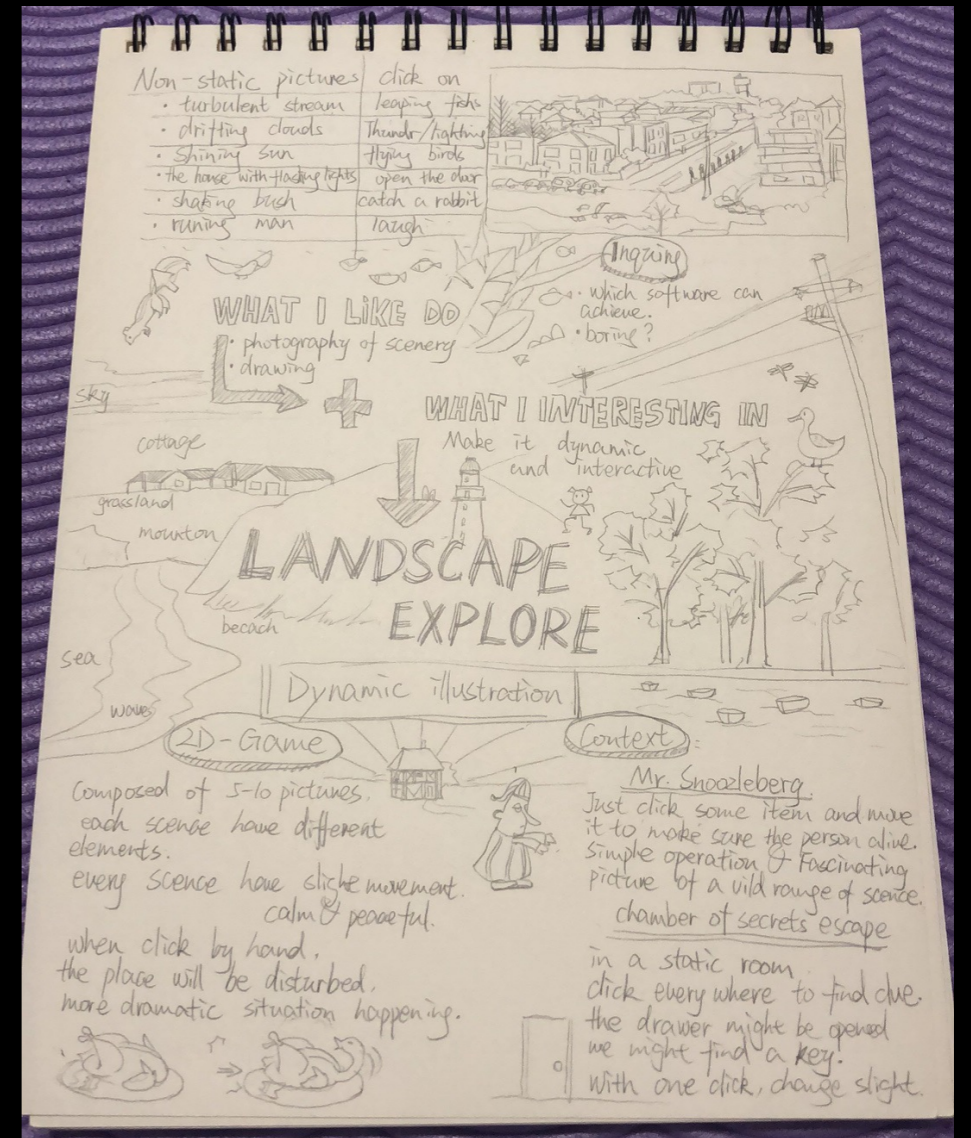 Non-static pictures click on
• turbulent stream leaping fishs
• drifting clouds Thundr/lighting
• Shining sun flying birds
• the house with flasting lights open the door
• shaking bush catch a rabbit
• runing man laugh
Inquire
• which software can
achieve.
• boring?
WHAT I LIKE DO
• photography of scenery
• drawing
sky
WHAT I INTERESTING IN
Make it dynamic
and interactive
cottage
grassland
mounton
LANDSCAPE
EXPLORE
becach
sea
wave
Dynamic illustration
2D-Game
composed of 5-10 pictures.
each scense have different
elements.
every scence have slighe movement.
calm & peaceful.
when click by hand.
the place will be disturbed.
more dramatic situation happening.
Context:
Mr. Snoozleberg
Just click some item and move
it to make sure the person alive.
simple operation & Fascinating
picture of a vild range of scence.
chamber of secrets escape
in a static room.
click every where to find clue.
the drawer might be opened
we might find a key.
With one click, change slight.